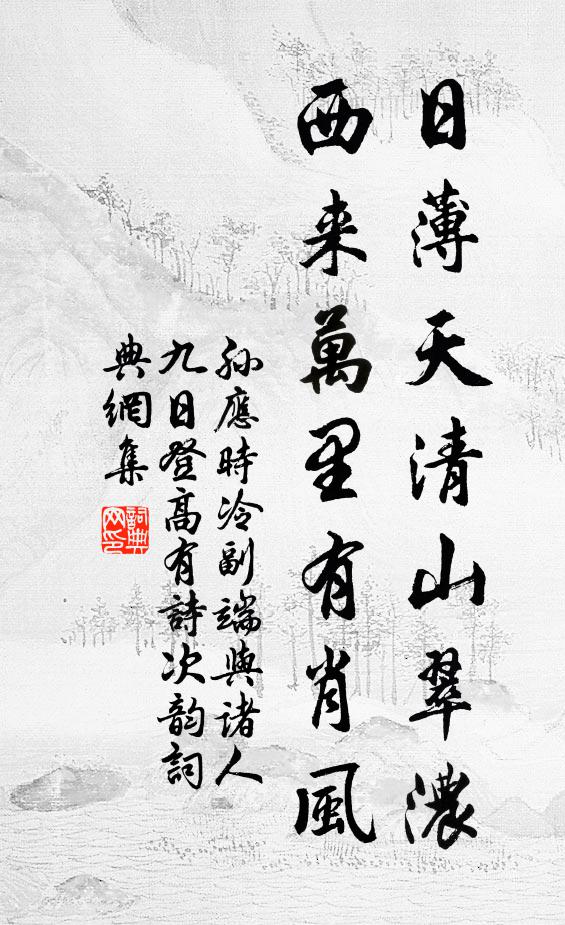 日薄天清山翠濃
西来萬里有肖風
孙應時冷副端與诸人
九日登高有詩次韵詞
典網集
詞典网印